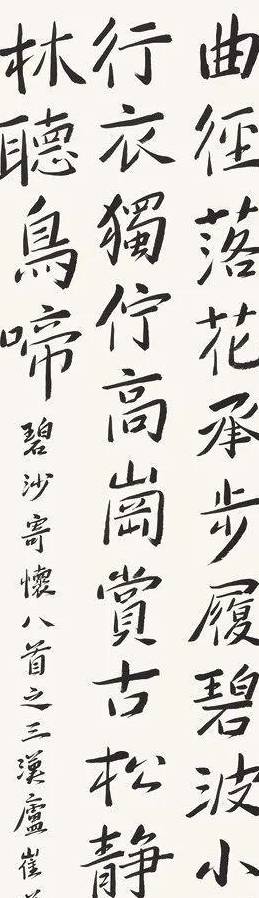 曲徑落花承步履碧波小
行衣獨佇高崗賞古松靜
林聽鳥啼
碧沙寄懷八首之三漢廬崔